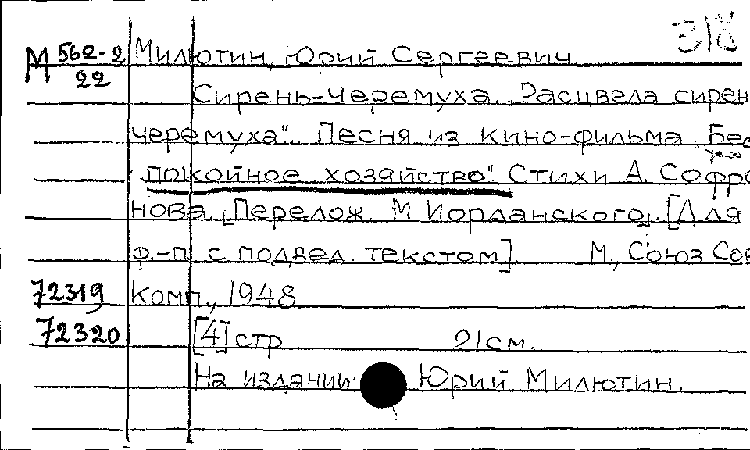 318
М 562-2 Милютин, Юрий Сергеевич
22
Сирень-черемуха. „Расцвела сирень
черемуха". Песня из кино-фильма „Бес
покойное хозяйство". Стихи А. Софро
нова. [Перелож. М. Иорданского]. [Для
ф.-п. с подвед. текстом] М., Союз Сов
72319 Комп., 1948
72320 [4] стр 21 см.
На издании: Юрий Милютин.